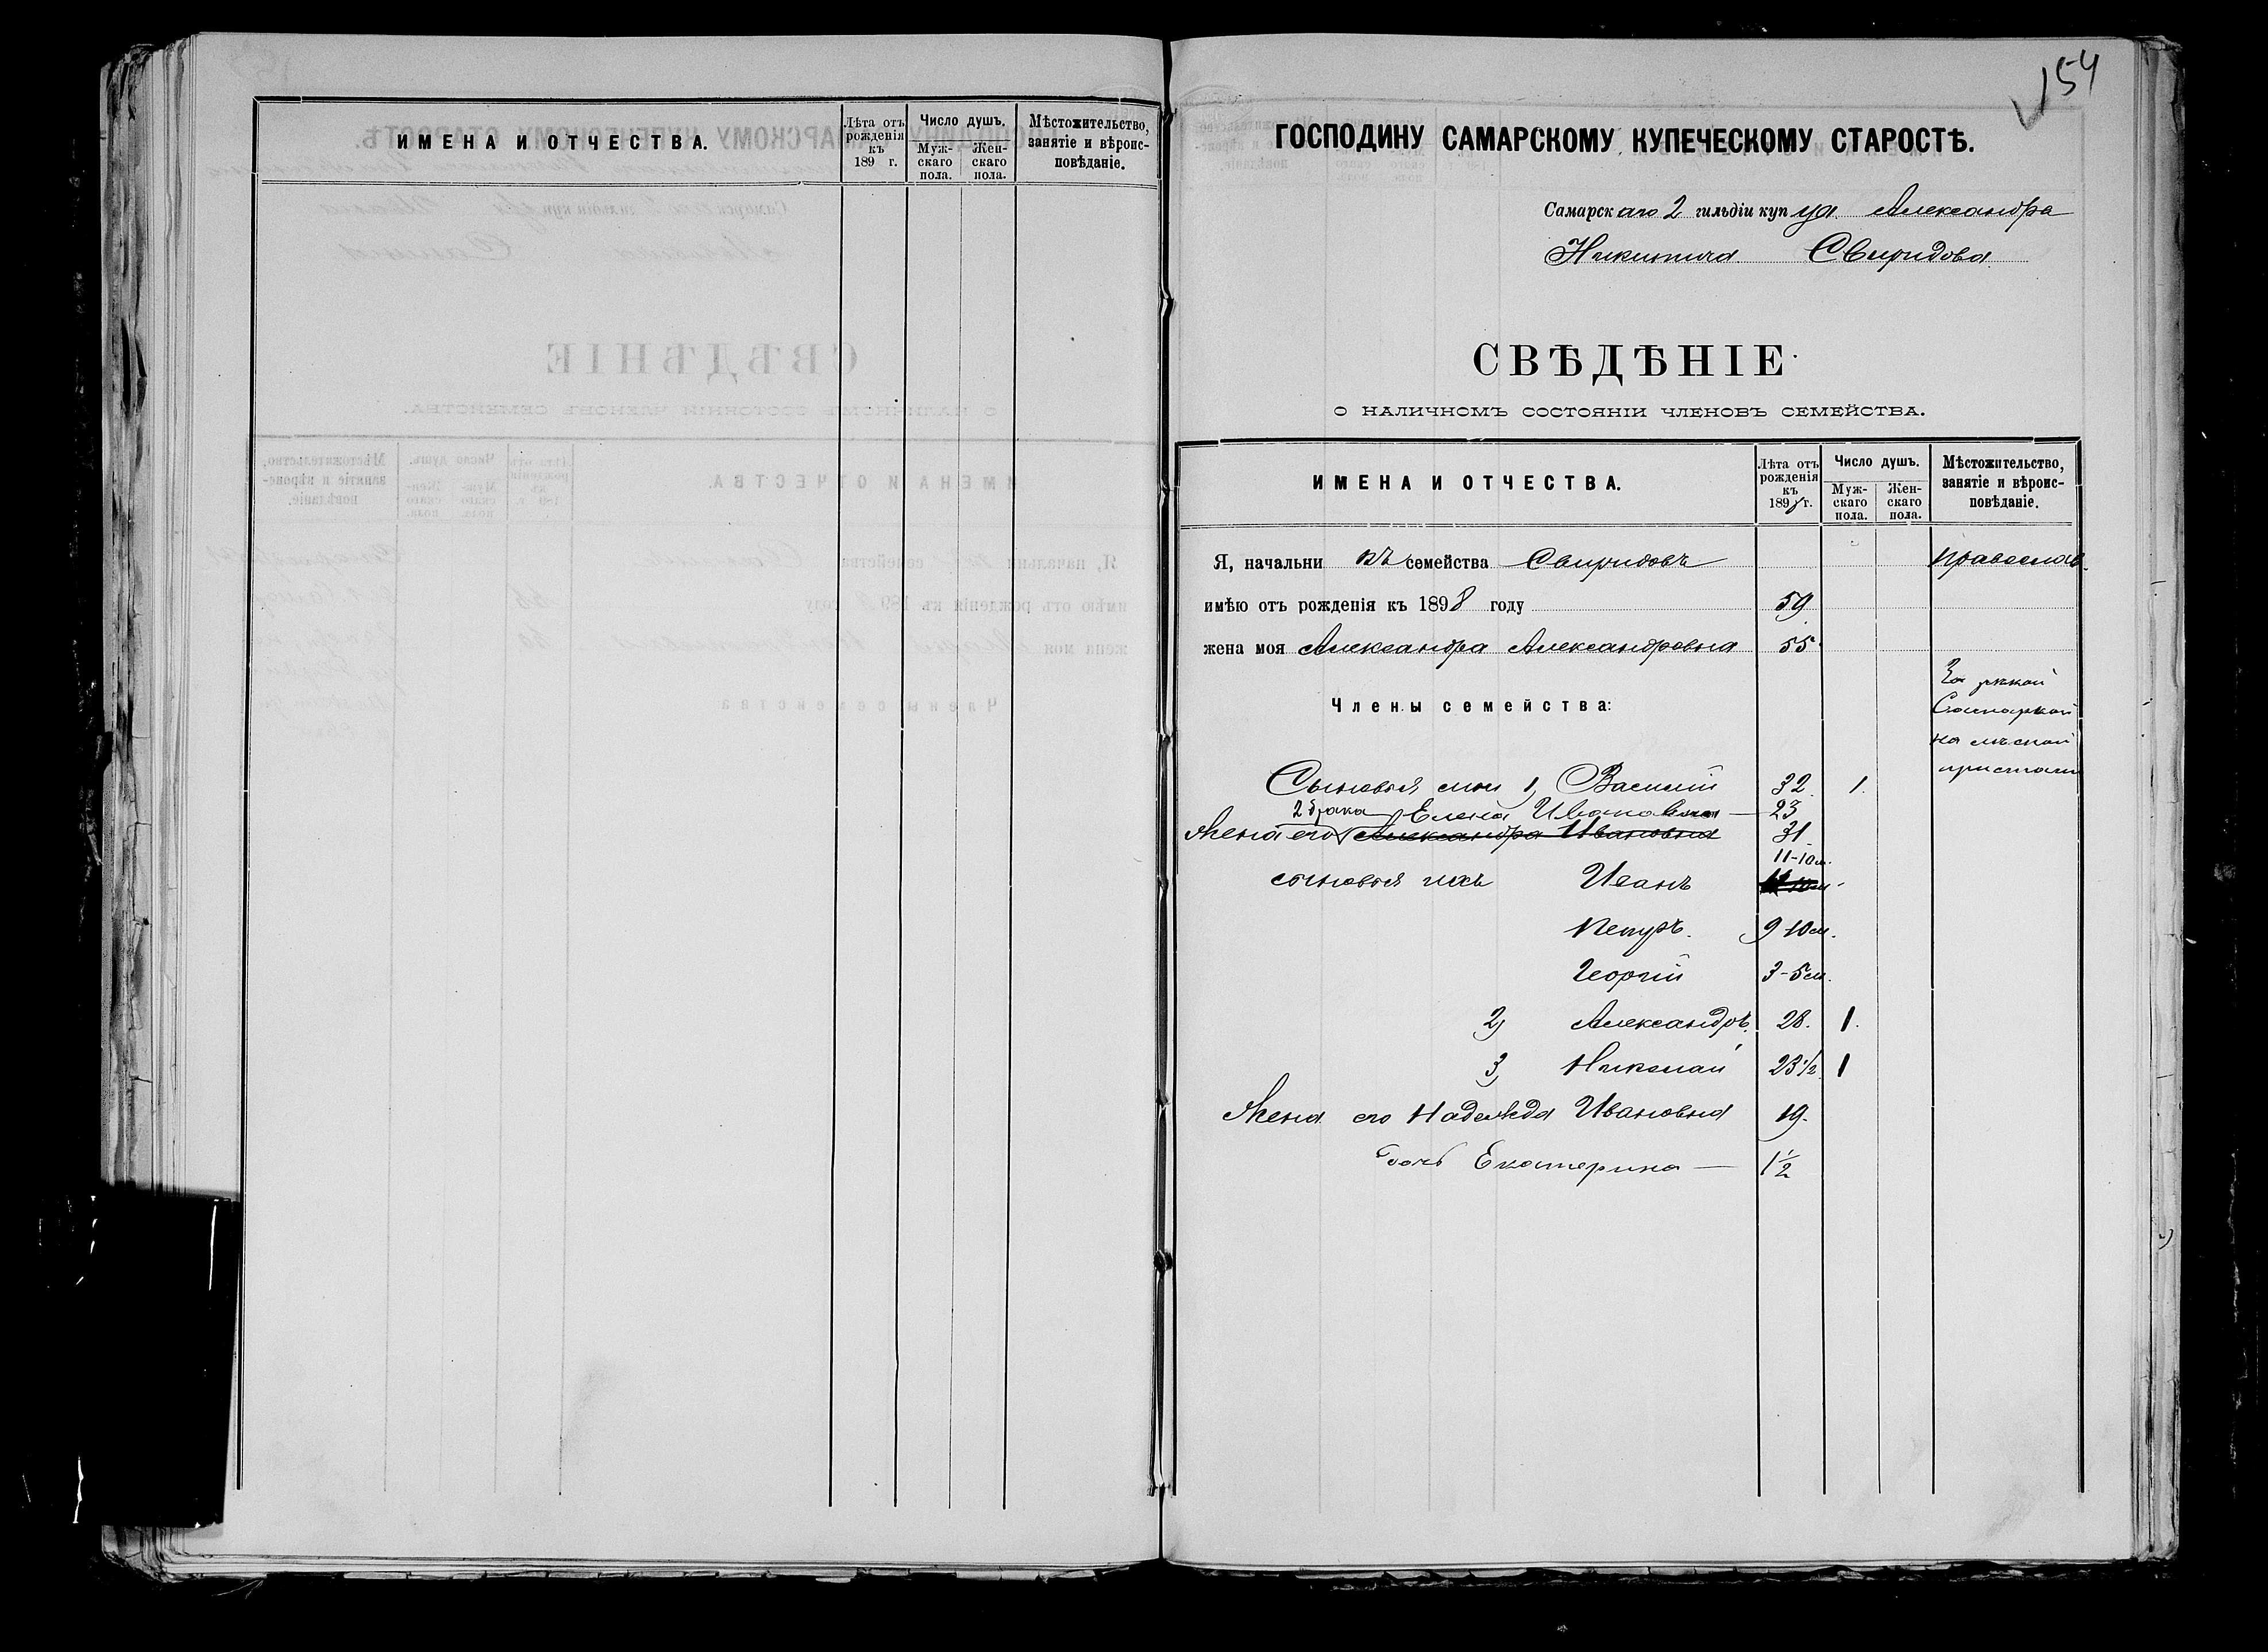 ИМЕНА И ОТЧЕСТВА.
Лѣта отъ рожденія къ 189 г.
Число душъ.
Мужскаго пола.
Женскаго пола.
Мѣстожительство, занятіе и вѣроисповѣданіе.
154
ГОСПОДИНУ САМАРСКОМУ КУПЕЧЕСКОМУ СТАРОСТѢ.
Самарскаго 2 гильдіи купца Александра
Никитича Свиридова
СВѢДѢНІЕ
О НАЛИЧНОМЪ СОСТОЯНІИ ЧЛЕНОВЪ СЕМЕЙСТВА.
ИМЕНА И ОТЧЕСТВА.
Лѣта отъ рожденія къ 189 г.
Число душъ.
Мужскаго пола.
Женскаго пола.
Мѣстожительство, занятіе и вѣроисповѣданіе.
Я, начальникъ семейства Свиридовъ православ.
имѣю отъ рожденія къ 1898 году 59
жена моя Александра Александровна 55
За рѣкой
Самаркой
на лѣсной
пристани
Члены семейства:
Сыновья мои 1) Василий 32 1.
2 брака Елена Ивановна — 23
Жена его Александра Ивановна 31
11-10м.
сыновья ихъ Иванъ
Петръ. 9 10м.
Георгій 3-5м.
2) Александръ. 28. 1.
3) Николай 23 1/2 1
Жена его Надежда Ивановна 19.
дочь Екатерина — 1 1/2